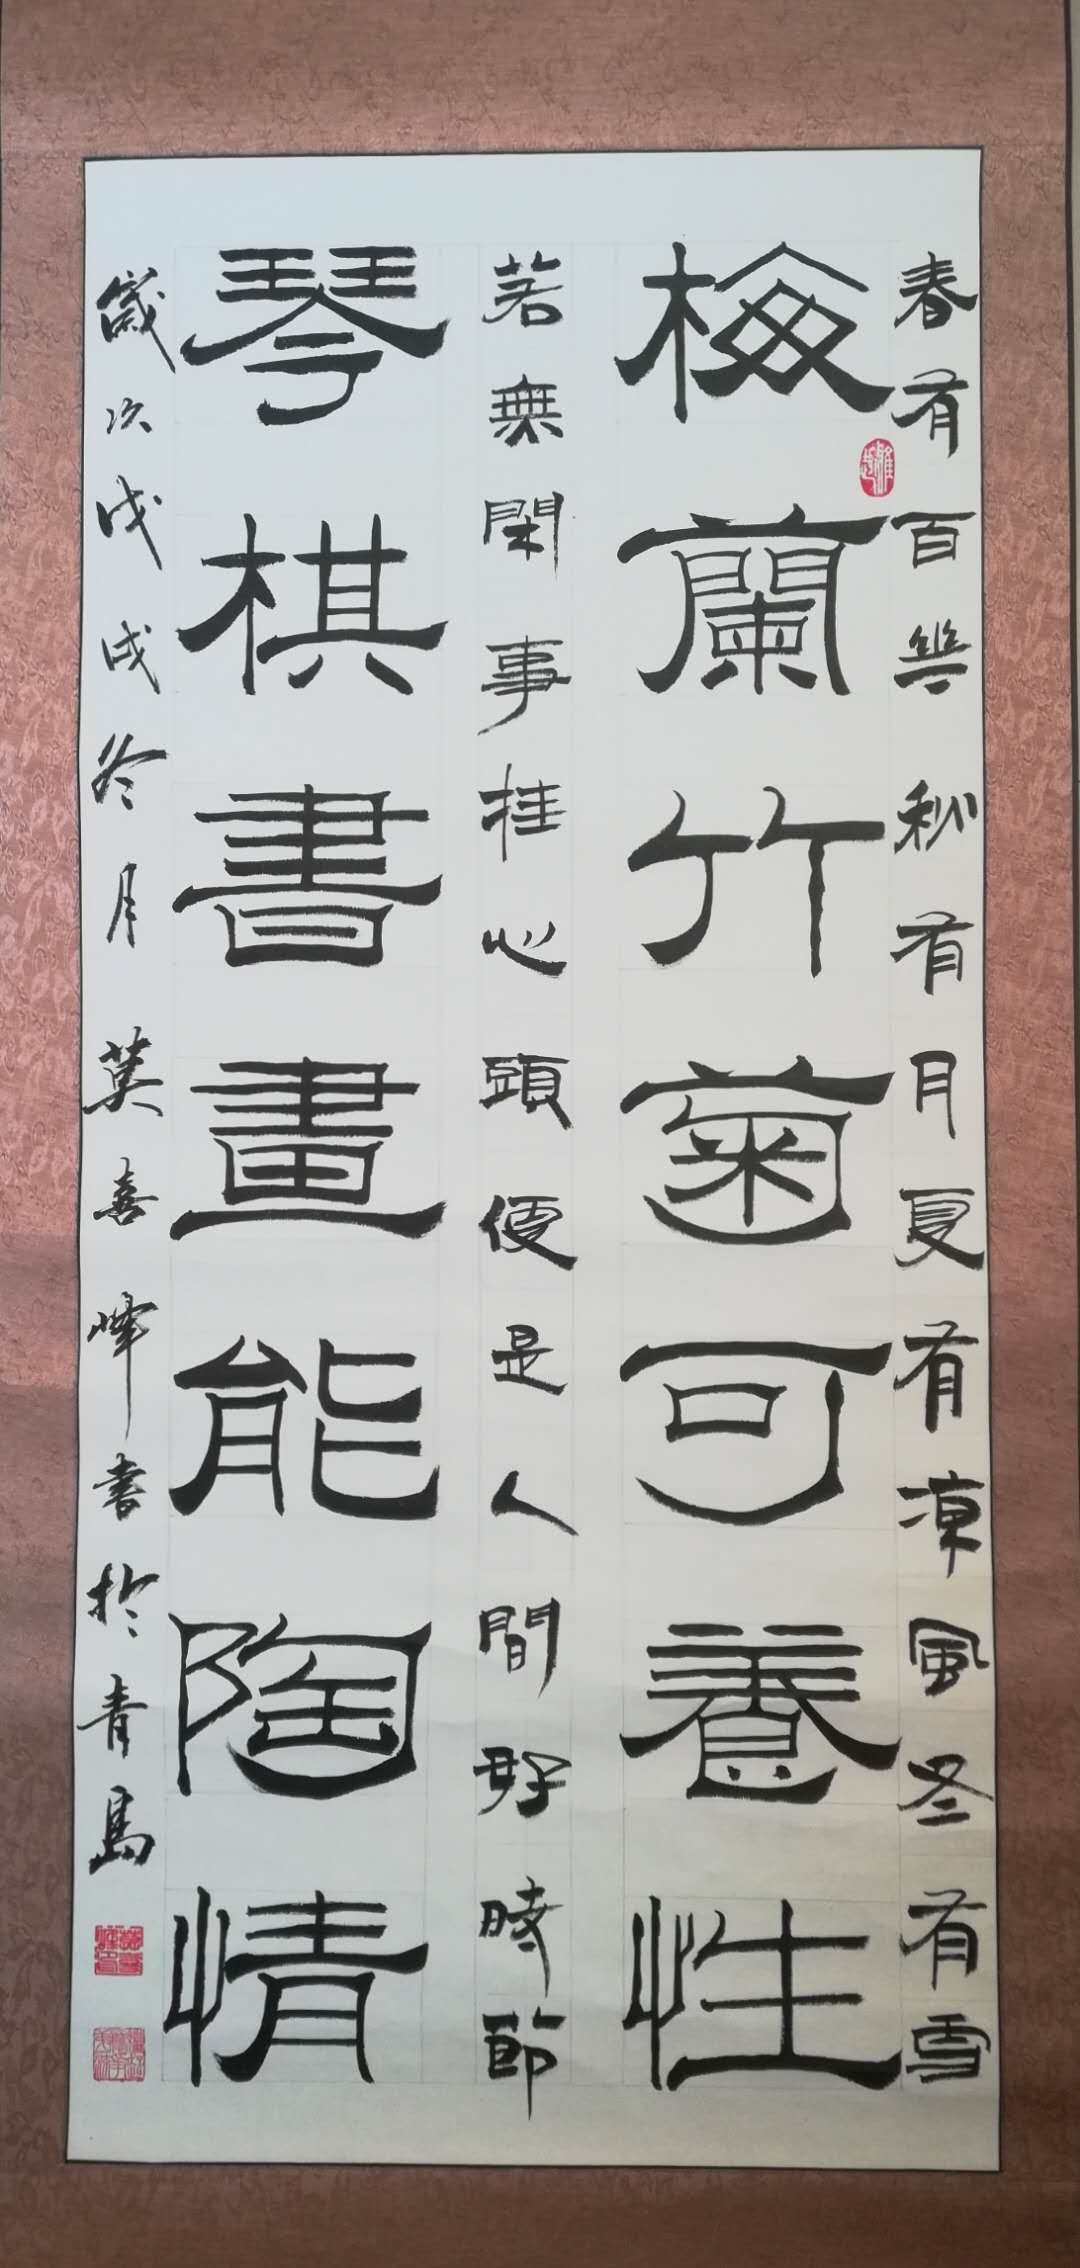 春有百花秋有月夏有涼風冬有雪
梅蘭竹菊可養性
若無閑事挂心頭便是人間好時節
琴棋書畫能陶情
歲次戊戌冬月莫喜峰書於青島